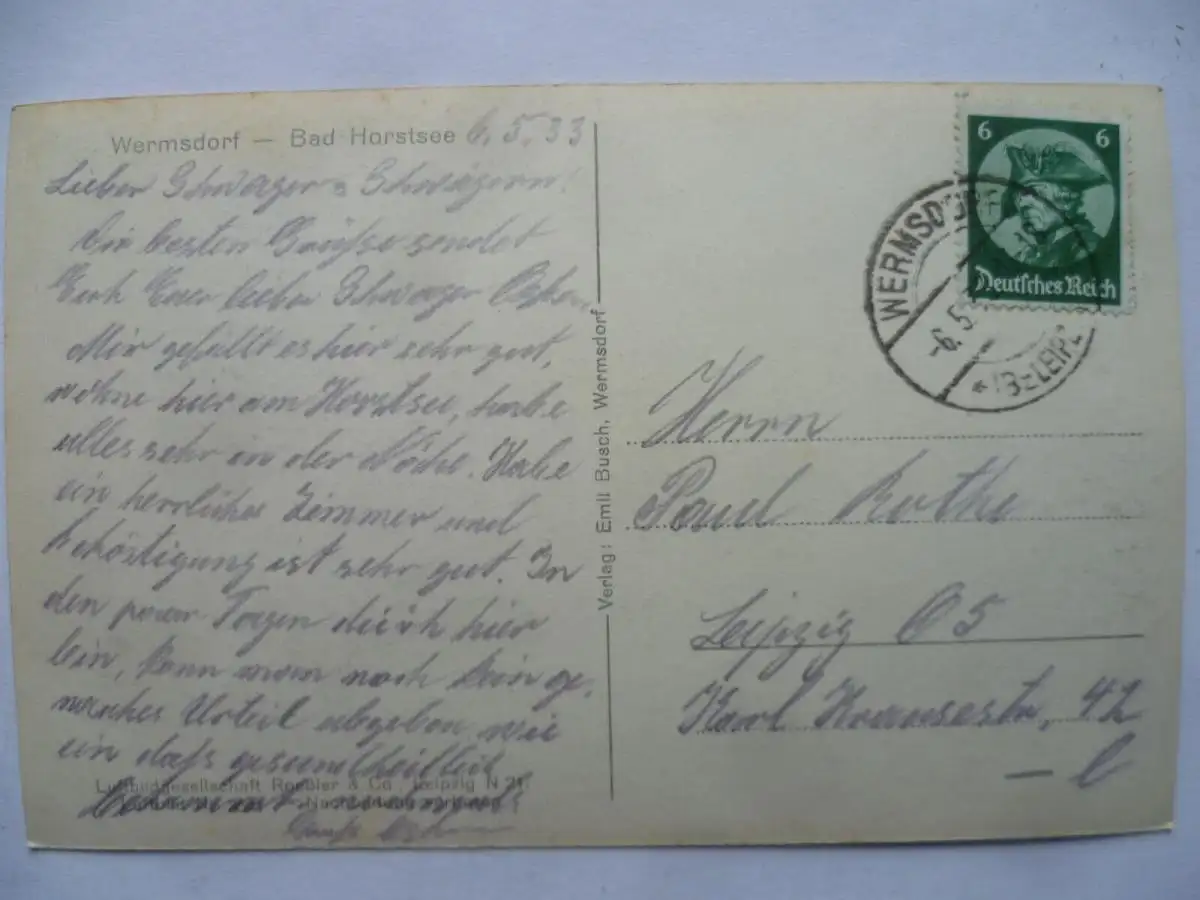 Wermsdorf — Bad Horstsee 6.5.33
Lieber Schwager u Schwägern!
Die besten Grüsse sendet
Euch Euer lieber Schwager Oskar.
Mir gefällt es hier sehr gut,
wohne hier am Horstsee, habe
alles sehr in der Nähe. Habe
ein herrliches Zimmer und
beköstigung ist sehr gut. In
den paar Tagen die ich hier
bin, kann man noch kein ge-
Urteil abgeben wie
ein dass gesundheitlich
Luftbildgesellschaft Roeßler & Co, Leipzig N 21
bekommt
Gruß Oskar
Verlag: Emil Busch, Wermsdorf
6 6
Deutsches Reich
WERMSDORF
-6.5.
* (BZ. LEIPZ
Herrn
Paul Rothe
Leipzig O5
Karl Krausestr, 42